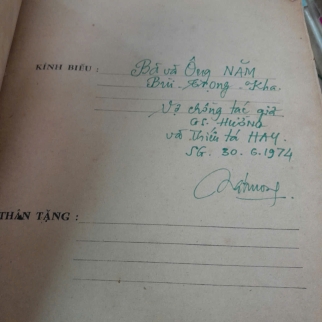 KÍNH BIẾU : Bà và Ông NĂM
Bùi Trọng Kha
Vợ chồng tác giả
GS. HƯỜNG
và Thiếu tá HAY.
SG. 30.6.1974
THÂN TẶNG :